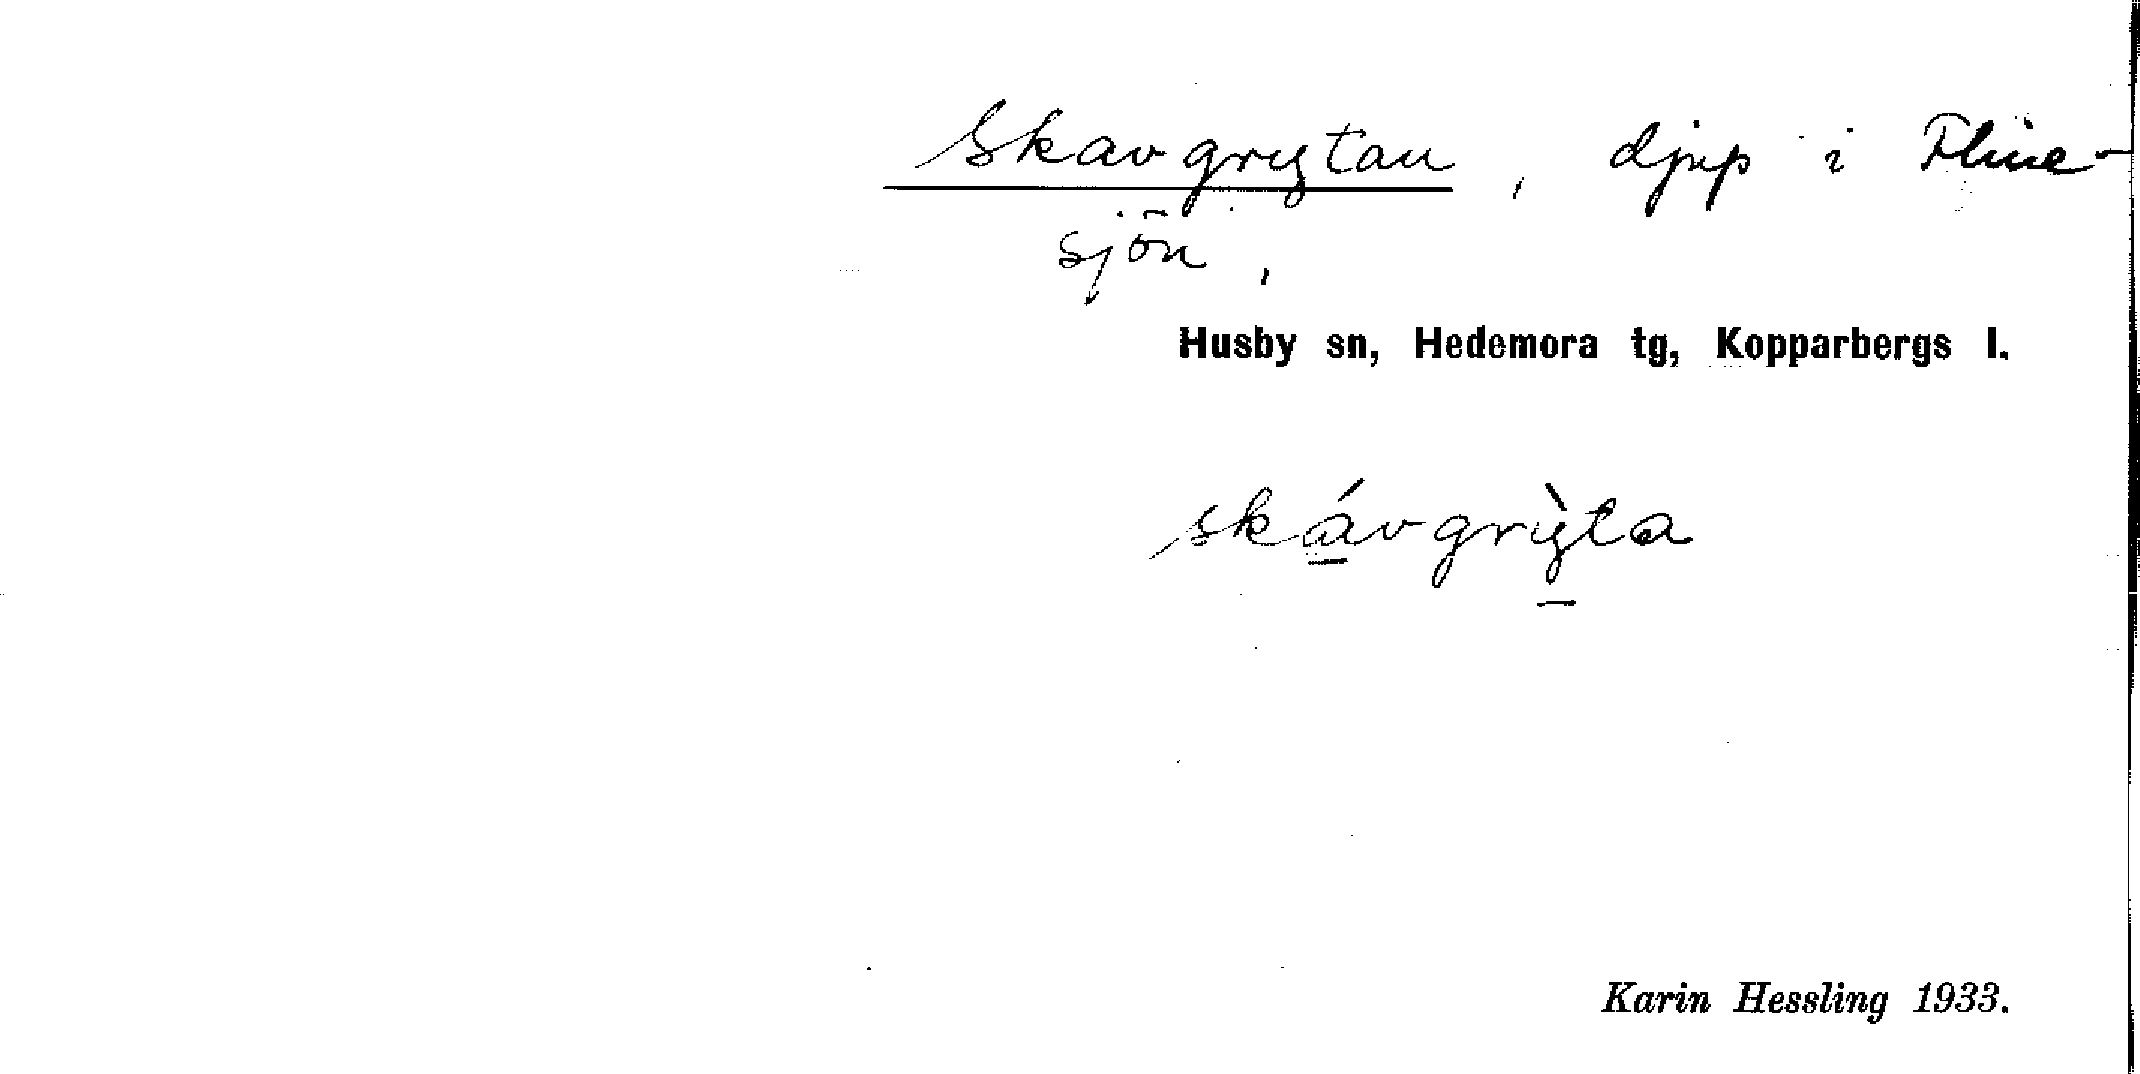 Skavgrytan, djup i Fline-
sjön,
Husby sn, Hedemora tg, Kopparbergs l.
skávgrỳta
Karin Hessling 1933.